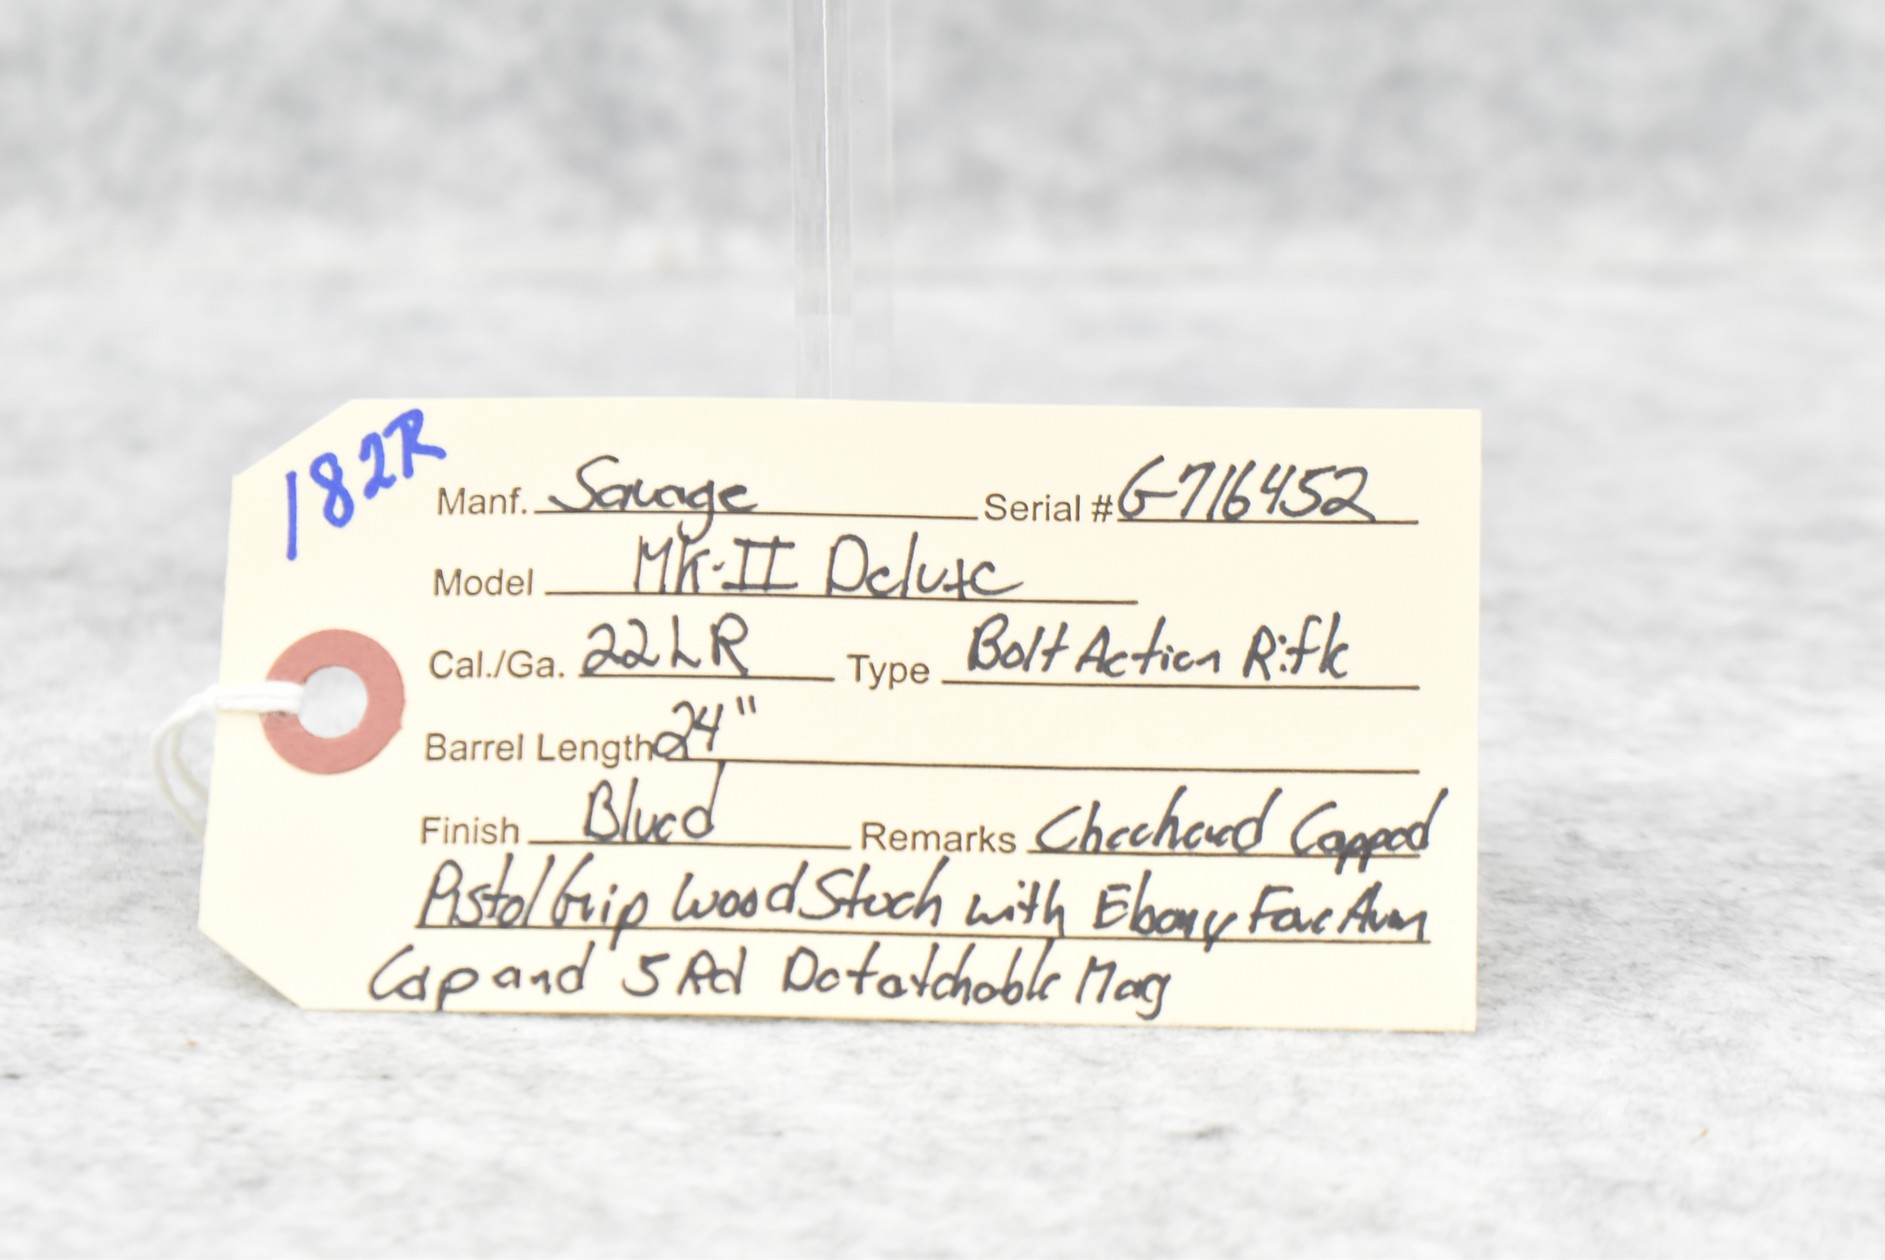 182R
Manf. Savage Serial # G-716452
Model MK-II Deluxe
Cal./Ga. 22LR Type Bolt Action Rifle
Barrel Length 24"
Finish Blued Remarks Checkered Capped
Pistol Grip Wood Stock with Ebony Fore Arm
Cap and 5 Rd Detatchable Mag